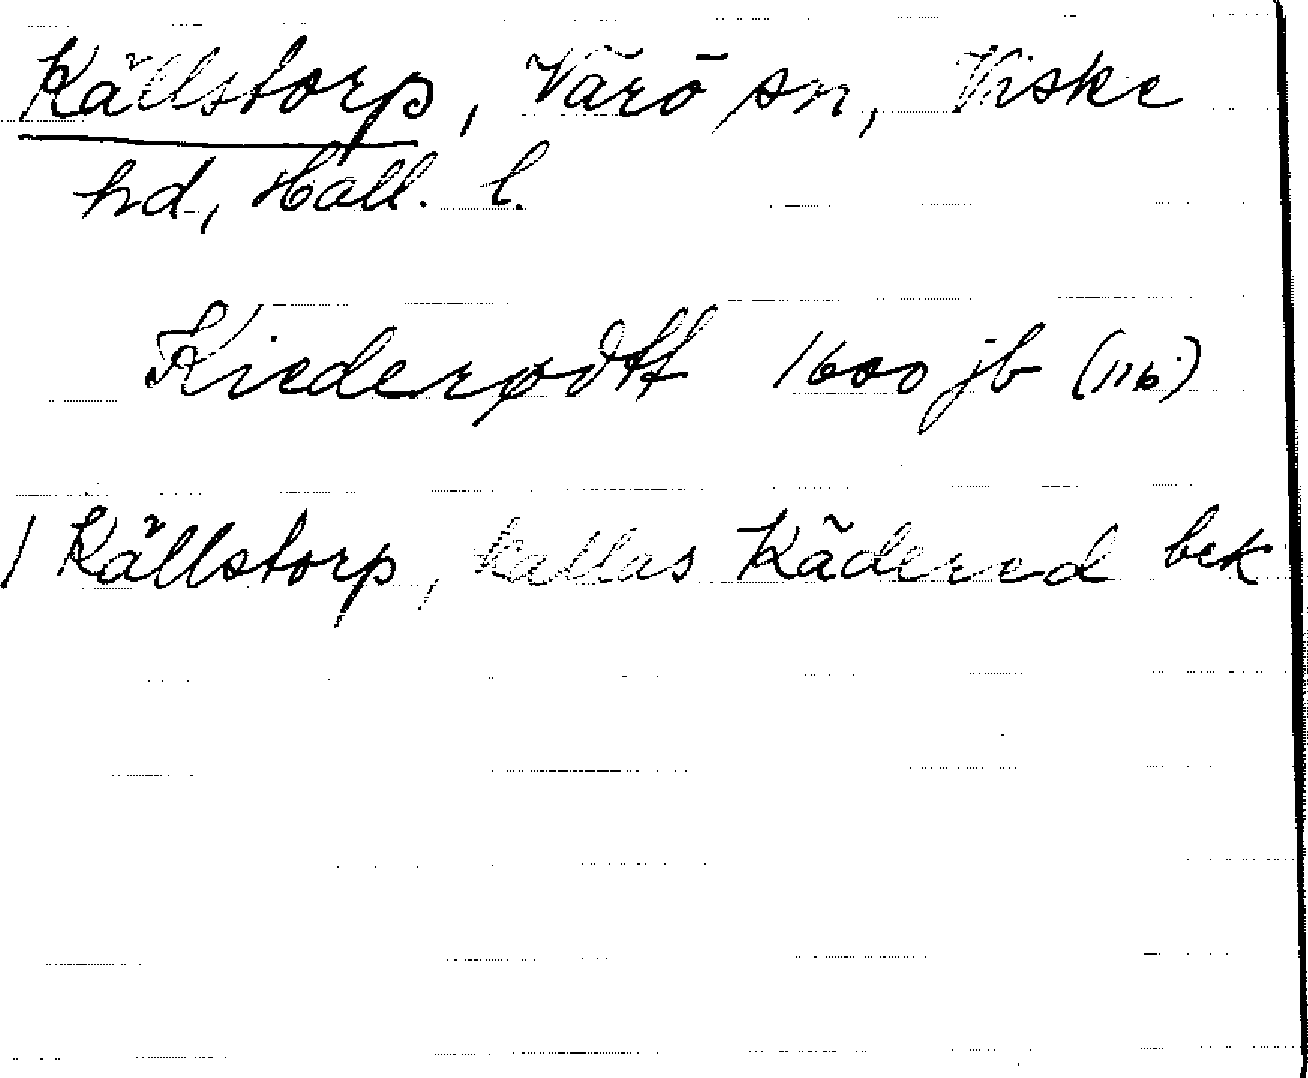 Källstorp, Värö sn, Viske
hd, Hall. l.
Kiederødtt 1600 jb (116)
1 Källstorp, kallas Käderød bek